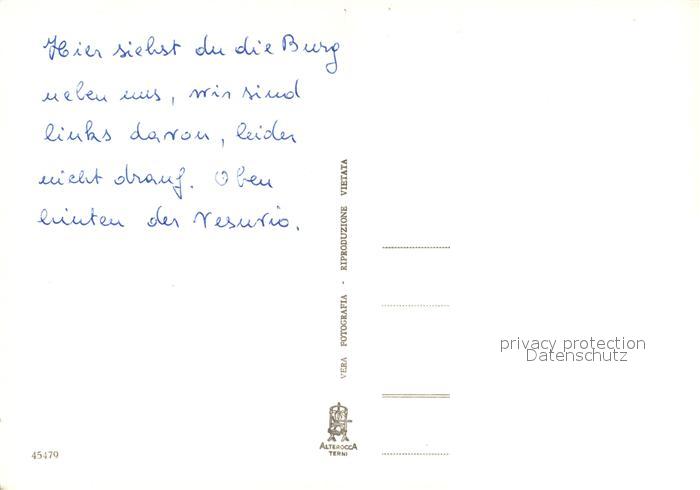 Hier siehst du die Burg
neben uns, wir sind
links davon, leider
nicht drauf. Oben
hinten der Vesuvio.
VERA FOTOGRAFIA - RIPRODUZIONE VIETATA
privacy protection
Datenschutz
ALTEROCCA
TERNI
45479